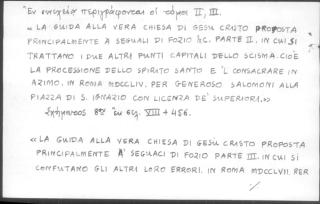 Ἐν συνεχείᾳ περιγράφονται οἱ τόμοι II, III.
« LA GUIDA ALLA VERA CHIESA DI GESU CRISTO PROPOSTA
PRINCIPALMENTE A SEGUALI DI FOZIO &C. PARTE II. IN CUI SI
TRATTANO I DUE ALTRI PUNTI CAPITALI DELLO SCISMA. CIOÈ
LA PROCESSIONE DELLO SPIRITO SANTO E 'L CONSACRARE IN
AZIMO. IN ROMA MDCCLIV. PER GENEROSO SALOMONI ALLA
PIAZZA DI S. IGNAZIO CON LICENZA DE' SUPERIORI.»
8ον σελ. VIII + 456.
« LA GUIDA ALLA VERA CHIESA DI GESU CRISTO PROPOSTA
PRINCIPALMENTE A' SEGUACI DI FOZIO PARTE III. IN CUI SI
CONFUTANO GLI ALTRI LORO ERRORI. IN ROMA MDCCLVII. PER